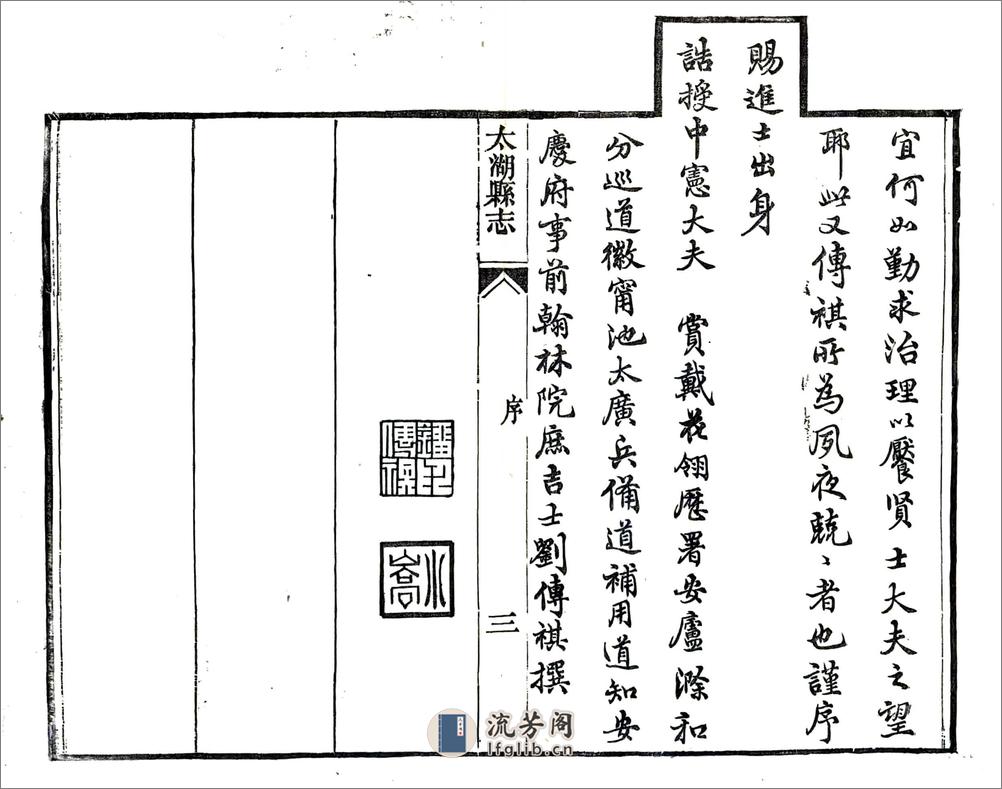 宜何如勤求治理以饜賢士大夫之望
耶此又傳祺所為夙夜兢〻者也謹序
賜進士出身
誥授中憲大夫 賞戴花翎歷署安廬滁和
分巡道徽甯池太廣兵備道補用道知安
慶府事前翰林院庶吉士劉傳祺撰
太湖縣志
序
三
流芳阁
lfglib.cn